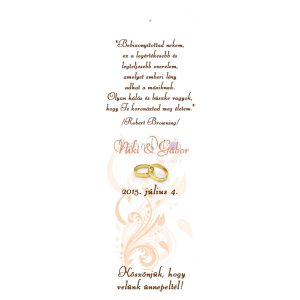 "Bebizonyítottad nekem,
ez a legértékesebb és
legteljesebb szerelem,
amelyet emberi lény
adhat a másiknak.
Olyan hálás és büszke vagyok,
hogy Te koronáztad meg életem."
/Robert Browning/
Niki & Gábor
2015. július 4.
Köszönjük, hogy
velünk ünnepeltél!